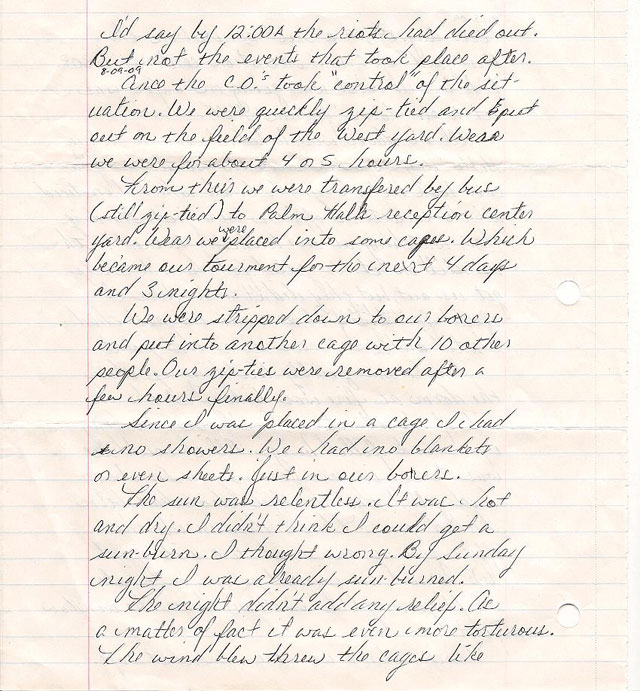 I'd say by 12:00A the riots had died out.
But not the events that took place after.
8-09-09
Once the C.O.'s took "control" of the sit-
uation. We were quickly zip-tied and put
out on the field of the West yard. Wear
we were for about 4 or 5 hours.
From their we were transfered by bus
(still zip-tied) to Palm Hall reception center
yard. Wear we were placed into some cages. Which
became our tourment for the next 4 days
and 3 nights.
We were stripped down to our boxers
and put into another cage with 10 other
people. Our zip-ties were removed after a
few hours finally.
Since I was placed in a cage I had
no showers. We had no blankets
or even sheets. Just in our boxers.
The sun was relentless. It was hot
and dry. I didn't think I could get a
sun-burn. I thought wrong. By Sunday
night I was already sun-burned.
The night didn't add any relief. As
a matter of fact it was even more torturous.
The wind blew threw the cages like